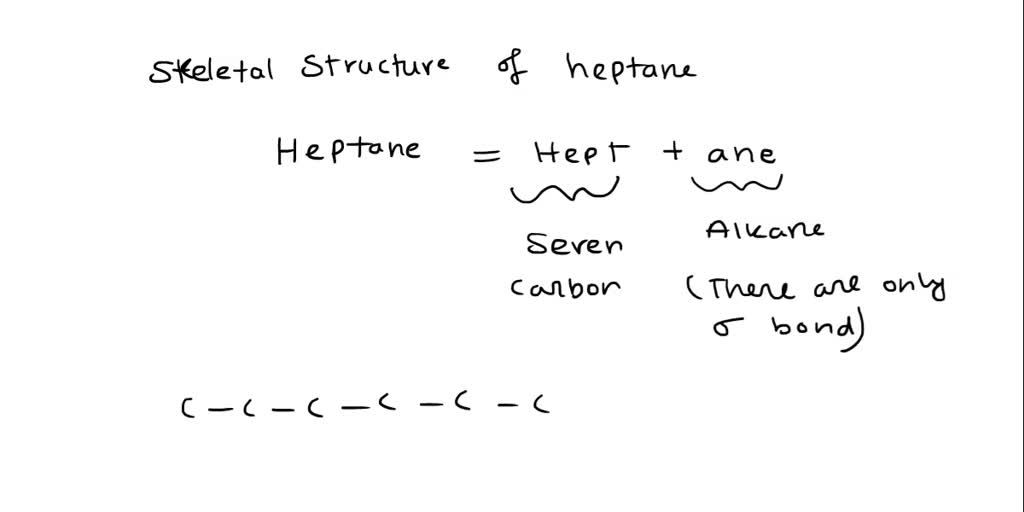 Skeletal Structure of heptane
Heptane = Hept + ane
Seven Alkane
carbon (There are only
σ bond)
C – C – C – C – C – C